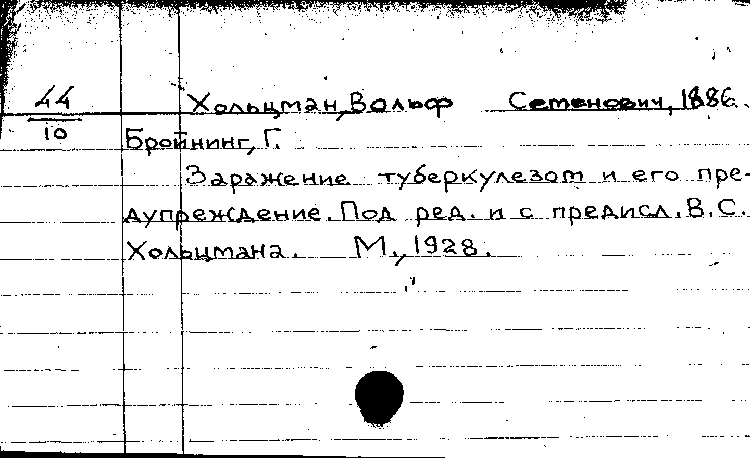 44 Хольцман, Вольф Семенович, 1886.
10
Бройнинг, Г.
Заражение туберкулезом и его пре-
дупреждение. Под ред. и с предисл. В.С.
Хольцмана. М., 1928.